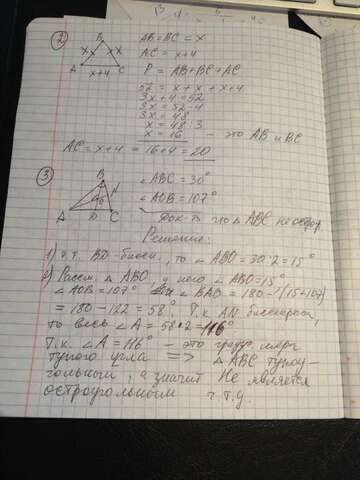 2
B
x x
A C
x+4
AB=BC=x
AC=x+4
P = AB+BC+AC
52 = x + x + x+4
3x+4=52
3x=52-4
3x=48
x=48:3
x=16 - это AB и BC
AC = x+4 = 16+4 = 20
3
B
N
O
A D C
∠ABC=30°
∠AOB=107°
Док-ть что △ABC не остроуг.
Решение:
1) т.к. BD-бисси., то ∠ABO=30:2=15°
2) Рассм. △ABO, у него ∠ABO=15°
∠AOB=107° ∠BAO = 180-(15+107)
=180-122=58°. Т.к AN биссектриса,
то весь ∠A = 58·2=116°
Т.к. ∠A=116° - это град. мера
тупого угла => △ABC тупоу-
гольный, а значит Не является
остроугольным ч.т.д.